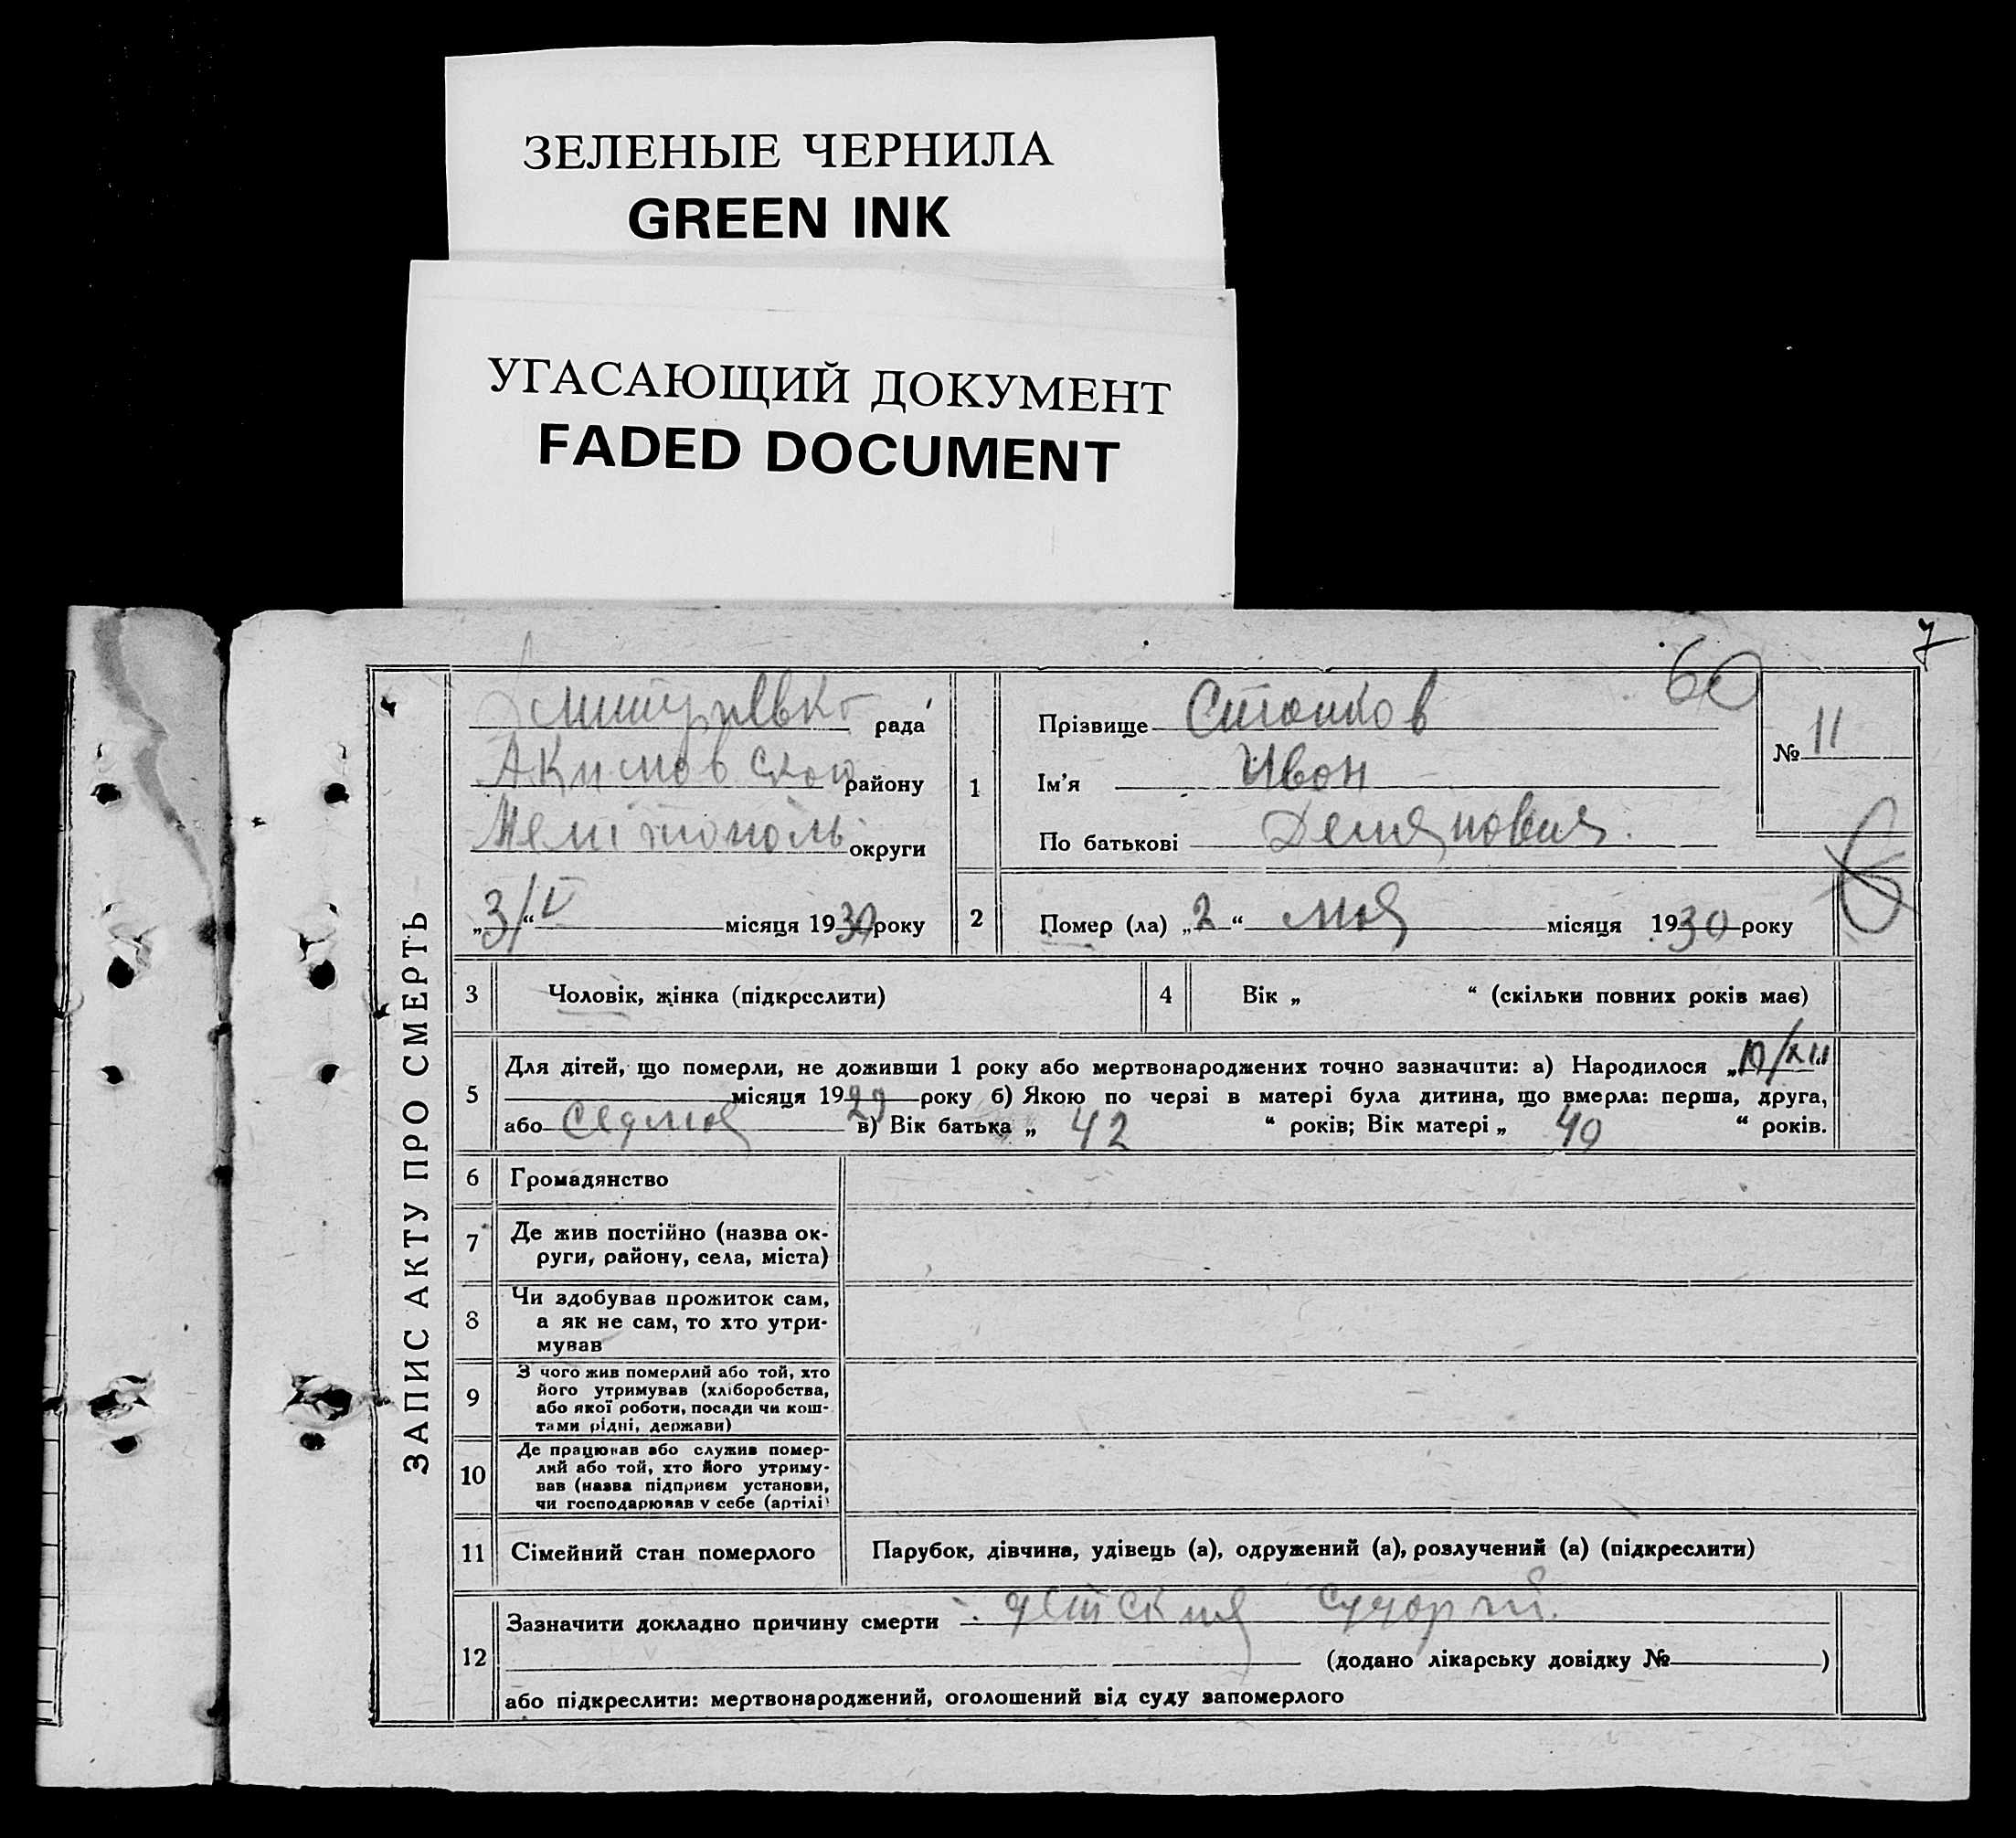 ЗЕЛЕНЫЕ ЧЕРНИЛА
GREEN INK
УГАСАЮЩИЙ ДОКУМЕНТ
FADED DOCUMENT
7
60
ЗАПИС АКТУ ПРО СМЕРТЬ
рада
Акимовского району
округи
„3/“ V місяця 1930 року
1
Прізвище Стоиков
Ім'я Ивон
По батькові Демянович
№ 11
2
Помер (ла) „2“ мая місяця 1930 року
3
Чоловік, жінка (підкреслити)
4
Вік „ “ (скільки повних років має)
5
Для дітей, що померли, не доживши 1 року або мертвонароджених точно зазначити: а) Народилося „10/XII“
місяця 1929 року б) Якою по черзі в матері була дитина, що вмерла: перша, друга,
або седмоя в) Вік батька „ 42 “ років; Вік матері „ 40 “ років.
6
Громадянство
7
Де жив постійно (назва ок-
руги, району, села, міста)
8
Чи здобував прожиток сам,
а як не сам, то хто утри-
мував
9
З чого жив померлий або той, хто
його утримував (хліборобства,
або якої роботи, посади чи кош-
тами рідні, держави)
10
Де працював або служив помер-
лий або той, хто його утриму-
вав (назва підприєм установи,
чи господарював у себе (артілі)
11
Сімейний стан померлого
Парубок, дівчина, удівець (а), одружений (а), розлучений (а) (підкреслити)
12
Зазначити докладно причину смерти
(додано лікарську довідку № )
або підкреслити: мертвонароджений, оголошений від суду запомерлого